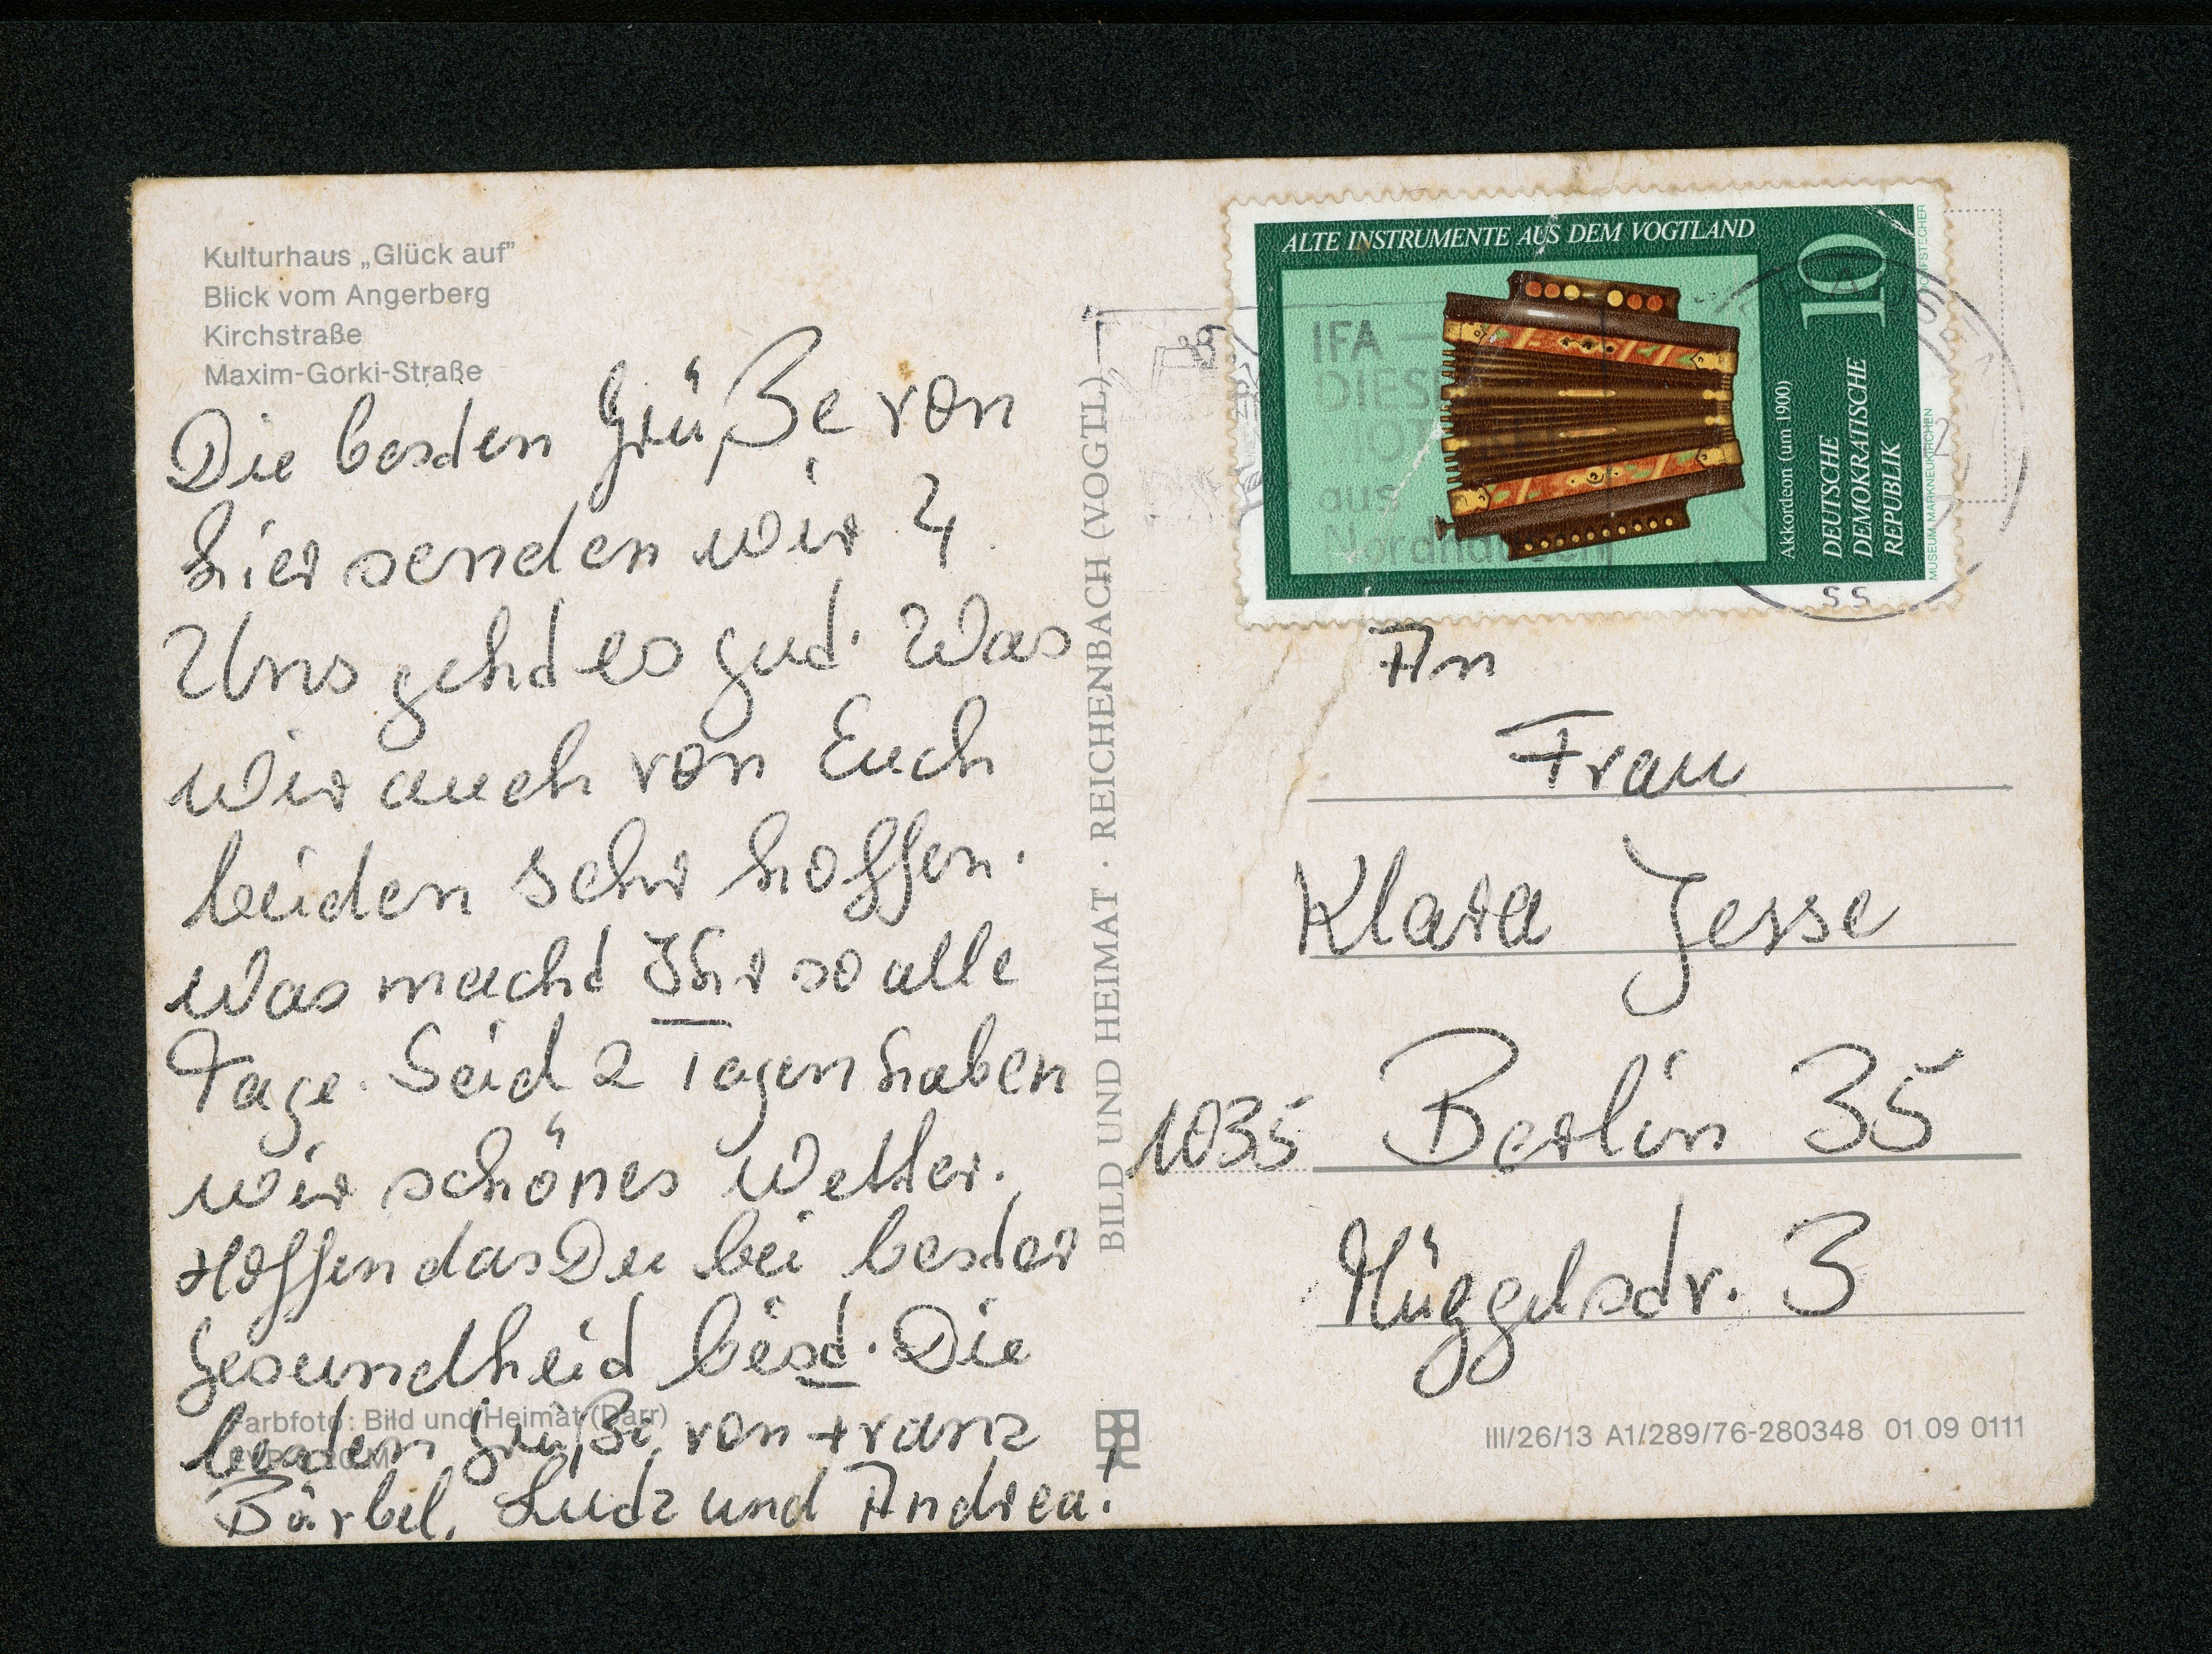 Kulturhaus „Glück auf”
Blick vom Angerberg
Kirchstraße
Maxim-Gorki-Straße
Die besden Grüße von
hier senden wir 4.
Uns gehd es gud. Was
wir auch von Euch
beiden sehr hoffen.
Was machd Ihr so alle
Tage. Seid 2 Tagen haben
wir schönes Wetter.
Hoffen das Du bei besder
Gesundheid bisd. Die
besden Grüße von Franz
Bärbel, Ludz und Andrea!
Farbfoto: Bild und Heimat (Darr)
BILD UND HEIMAT · REICHENBACH (VOGTL)
ALTE INSTRUMENTE AUS DEM VOGTLAND
10
Akkordeon (um 1900)
DEUTSCHE
DEMOKRATISCHE
REPUBLIK
MUSEUM MARKNEUKIRCHEN
IFA –
aus
An
Frau
Klara Jesse
1035 Berlin 35
Müggelsdr. 3
III/26/13 A1/289/76-280348 01 09 0111